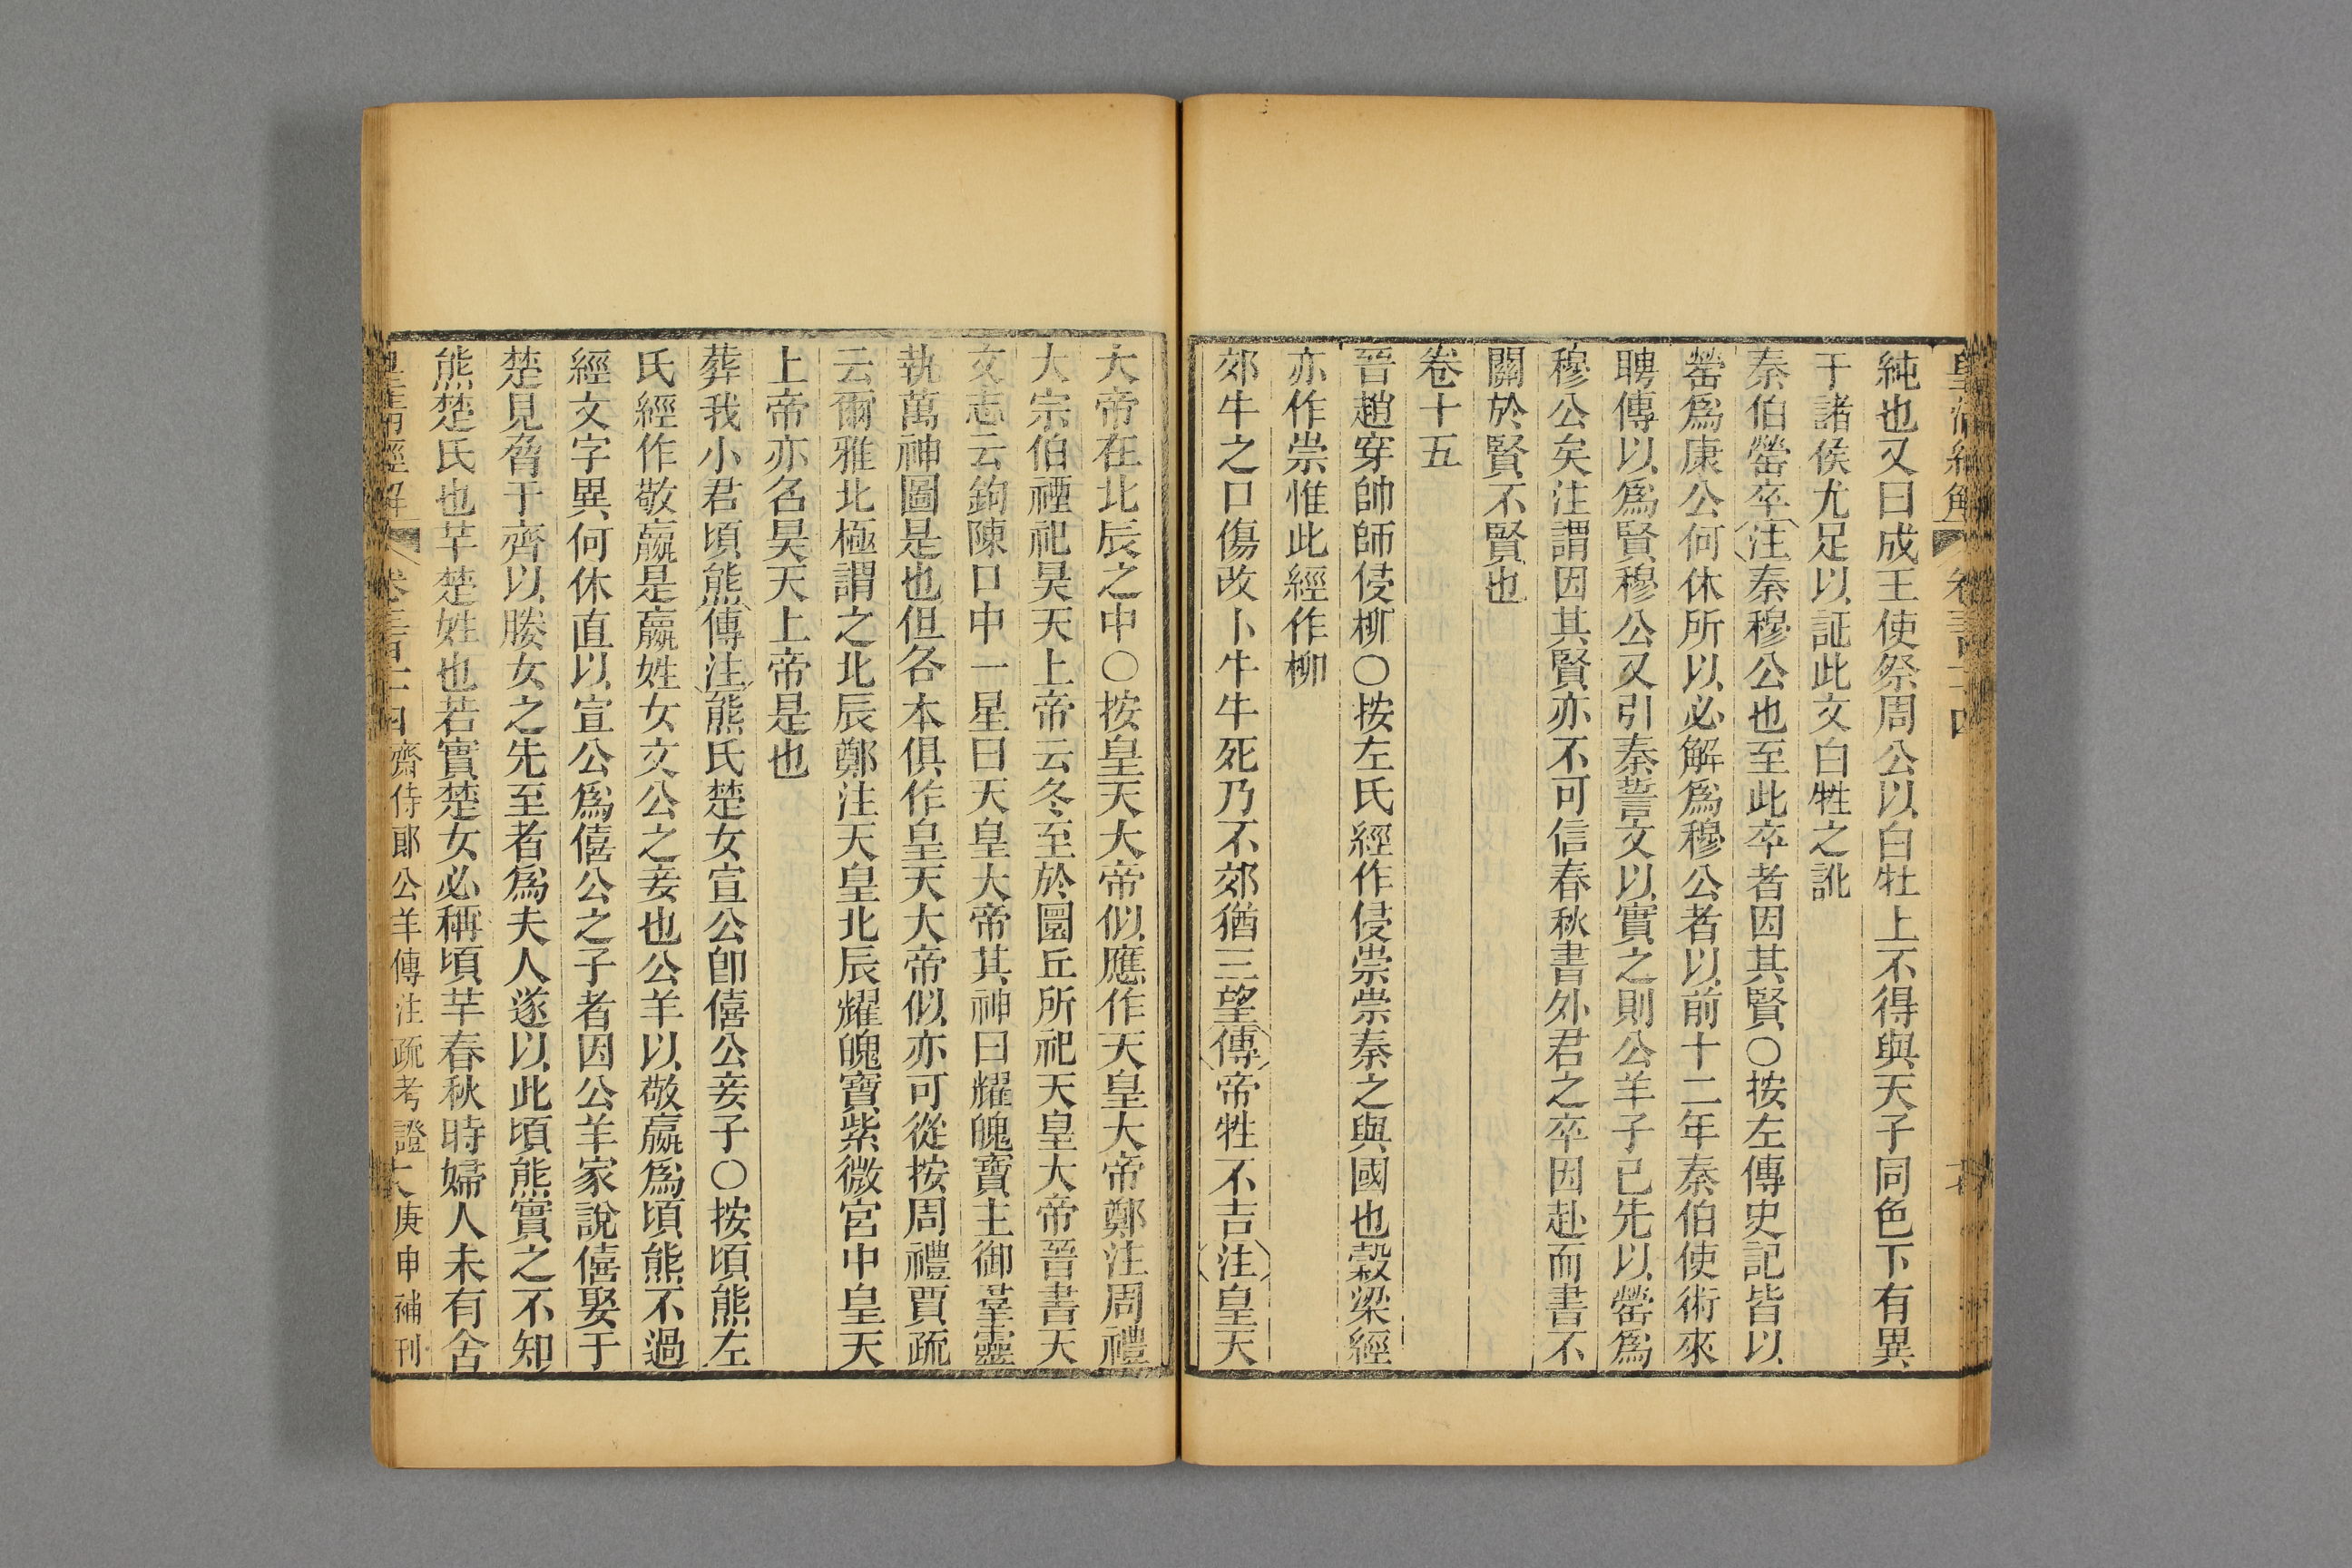 皇清經解 卷三百十四
純也又曰成王使祭周公以白牡上不得與天子同色下有異
于諸侯尤足以証此文白牲之訛
秦伯罃卒注秦穆公也至此卒者因其賢○按左傳史記皆以
罃爲康公何休所以必解爲穆公者以前十二年秦伯使術來
聘傳以爲賢穆公又引秦誓文以實之則公羊子已先以罃爲
穆公矣注謂因其賢亦不可信春秋書外君之卒因赴而書不
關於賢不賢也
卷十五
晉趙穿帥師侵柳○按左氏經作侵崇崇秦之與國也穀梁經
亦作崇惟此經作柳
郊牛之口傷改卜牛牛死乃不郊猶三望傳帝牲不吉注皇天
大帝在北辰之中○按皇天大帝似應作天皇大帝鄭注周禮
大宗伯禋祀昊天上帝云冬至於圜丘所祀天皇大帝晉書天
文志云鉤陳口中一星曰天皇大帝其神曰耀魄寶主御羣靈
執萬神圖是也但各本俱作皇天大帝似亦可從按周禮賈疏
云爾雅北極謂之北辰鄭注天皇北辰耀魄寶紫微宮中皇天
上帝亦名昊天上帝是也
葬我小君頃熊傳注熊氏楚女宣公卽僖公妾子○按頃熊左
氏經作敬嬴是嬴姓女文公之妾也公羊以敬嬴爲頃熊不過
經文字異何休直以宣公爲僖公之子者因公羊家說僖娶于
楚見脅于齊以媵女之先至者爲夫人遂以此頃熊實之不知
熊楚氏也芈楚姓也若實楚女必稱頃芈春秋時婦人未有舍
皇清經解 卷三百十四 齊侍郞公羊傳注疏考證 庚申補刊